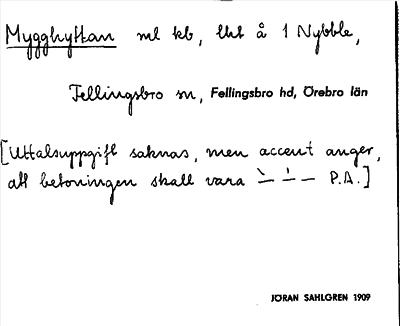 Mygghyttan ml kb, lht å 1 Nybble,
Fellingsbro sn, Fellingsbro hd, Örebro län
[Uttalsuppgift saknas, men accent anger,
att betoningen skall vara – – – P.A.]
JÖRAN SAHLGREN 1909